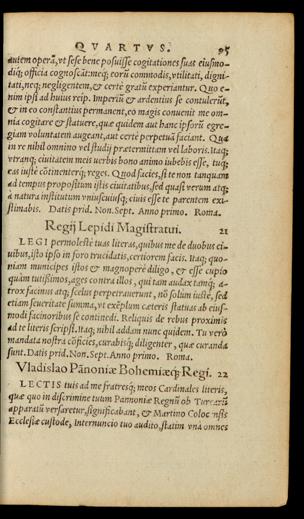 QVARTVS. 95
autem operā, vt sese bene posuisse cogitationes suas eiusmo-
diq; officia cognoscāt: neq; eorū commodis, vtilitati, digni-
tati, neq; negligentem, & certè gratū experiantur. Quo e-
nim ipsi ad huius reip. Imperiū & ardentius se contulerūt,
& in eo constantius permanent, eo magis conuenit me om-
nia cogitare & statuere, quæ quidem aut hanc ipsorū egre-
giam voluntatem augeant, aut certè perpetuā faciant. Qua
in re nihil omnino vel studij prætermittam vel laboris. Itaq;
vtranq; ciuitatem meis verbis bono animo iubebis esse, tuq;
eas iustè cōtinenterq; reges. Quod facies, si te non tanquam
ad tempus propositum istis ciuitatibus, sed quasi verum atq;
à natura institutum vniuscuiusq; ciuis esse te parentem exi-
stimabis. Datis prid. Non. Sept. Anno primo. Roma.
Regij Lepidi Magistratui. 21
LEGI permolestè tuas literas, quibus me de duobus ci-
uibus, isto ipso in foro trucidatis, certiorem facis. Itaq; quo-
niam municipes istos & magnoperè diligo, & esse cupio
quàm tutissimos, ages contra illos, qui tam audax tamq; a-
trox facinus atq; scelus perpetrauerunt, nō solùm iustè, sed
etiam seueritate summa, vt exēplum cæteris statuas ab eius-
modi facinoribus se continēdi. Reliquis de rebus proximis
ad te literis scripsi. Itaq; nihil addam nunc quidem. Tu verò
mandata nostra cōficies, curabisq; diligenter, quæ curanda
sunt. Datis prid. Non. Sept. Anno primo. Roma.
Vladislao Pānoniæ Bohemiæq; Regi. 22
LECTIS tuis ad me fratresq; meos Cardinales literis,
quæ quo in discrimine tuum Pannoniæ Regnū ob Turcarū
apparatū versaretur, significabant, & Martino Coloc nsis
Ecclesiæ custode, Internuncio tuo audito, statim vnà omnes